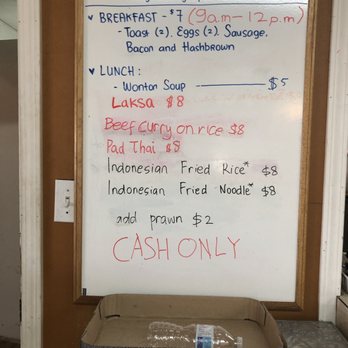 BREAKFAST - $7 (9am - 12p.m)
- Toast (2), Eggs (2), Sausage,
Bacon and Hashbrown
LUNCH :
- Wonton Soup $5
Laksa $8
Beef curry on rice $8
Pad Thai $8
Indonesian Fried Rice* $8
Indonesian Fried Noodle* $8
add prawn $2
CASH ONLY